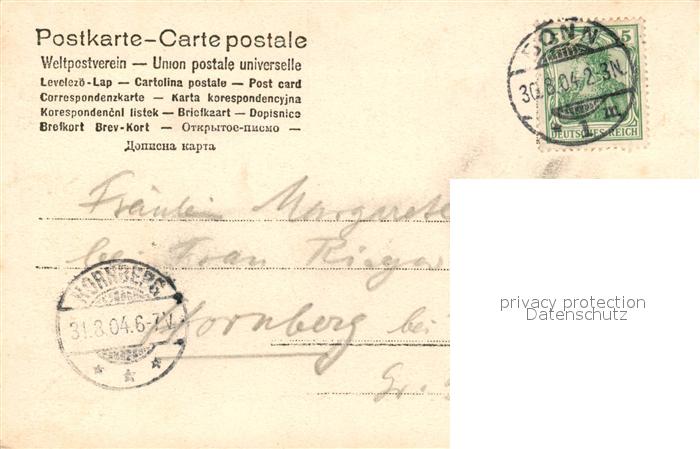 Postkarte – Carte postale
Weltpostverein — Union postale universelle
Levelező-Lap — Cartolina postale — Post card
Correspondenzkarte — Karta korespondencyjna
Korespondenční listek — Briefkaart — Dopisnice
Brefkort Brev-Kort — Открытое-письмо —
Дописна карта
BONN
30.8.04.2-3N.
* 1 m
5
DEUTSCHES REICH
Fräulein Margarete
bei Frau Rieger
Hornberg bei
HORNBERG
31.8.04.6-7V.
* * *
privacy protection
Datenschutz